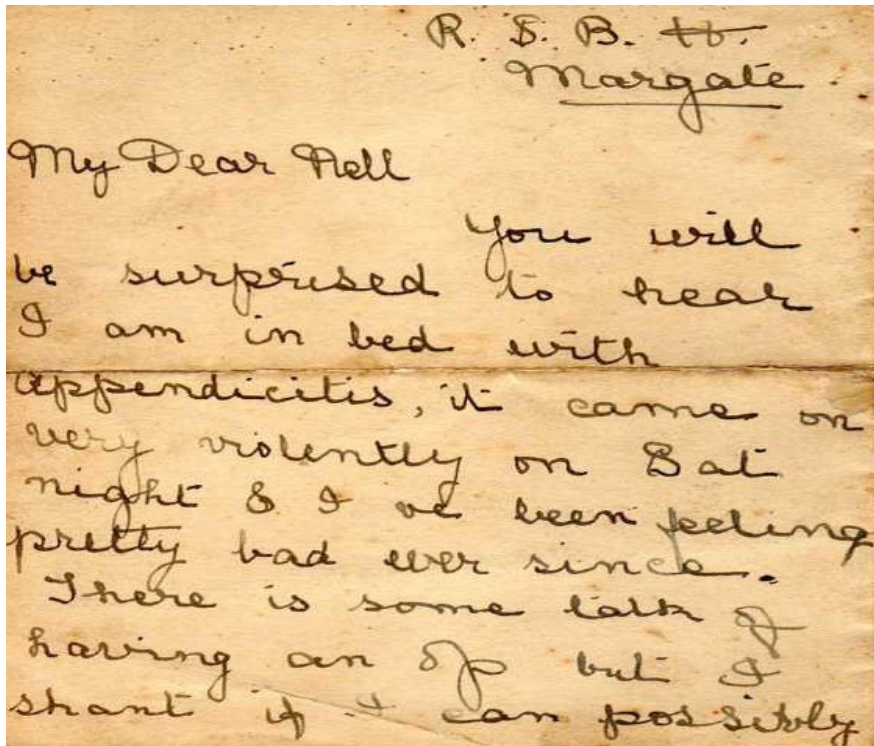 R. S. B. H.
Margate
My Dear Nell
You will
be surprised to hear
I am in bed with
appendicitis, it came on
very violently on Sat
night & I've been feeling
pretty bad ever since.
There is some talk of
having an op but I
shant if I can possibly